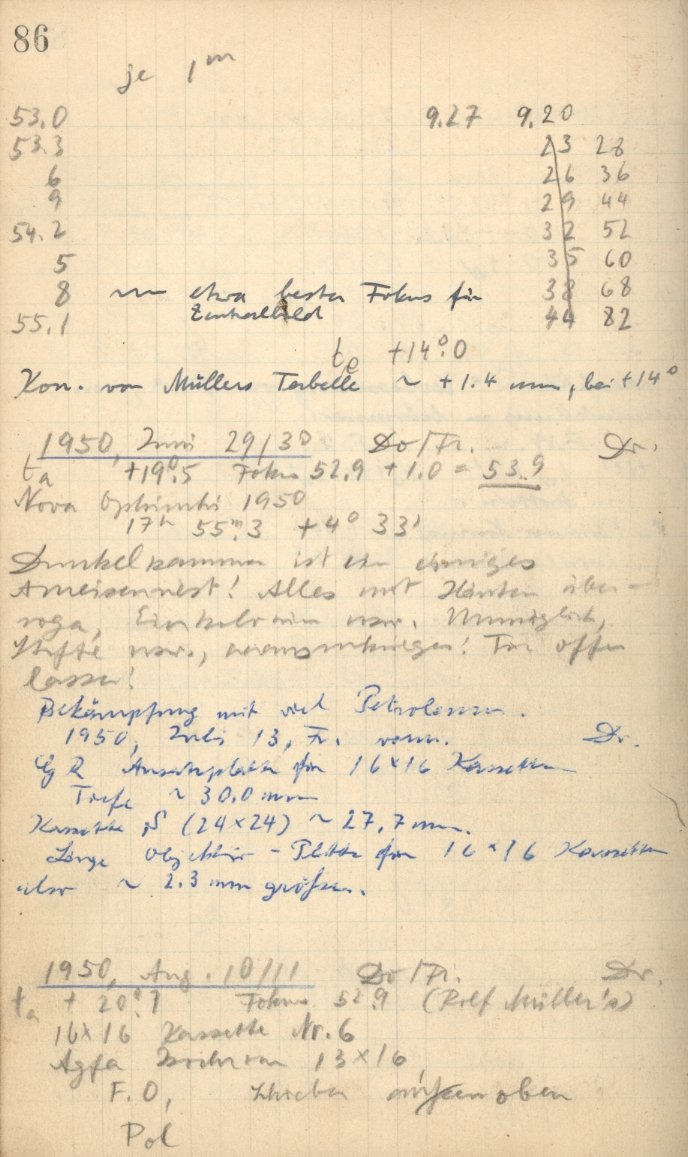 86
je 1m
53.0 9.27 9.20
53.3 23 28
6 26 36
9 29 44
54.2 32 52
5 35 60
8 ~ etwa bester Fokus für 38 68
55.1 Zentralbild 44 82
te +14°.0
Korr. von Müllers Tabelle ~ +1.4 mm, bei +14°
1950, Juni 29/30 Do/Fr. Dr.
ta +19°.5 Fokus 52.9 + 1.0 = 53.9
Nova Ophiuchi 1950
17h 55m.3 +4° 33'
Dunkelkammer ist ein einziges
Ameisennest! Alles mit Häuten über-
zogen, usw. Unmöglich,
Stifte usw., ! Tür offen
lassen!
Bekämpfung mit viel Petroleum.
1950, Juli 13, Fr. vorm. Dr.
Ansatzplatte für 16×16 Kassetten
Tiefe ~ 30.0 mm
Kassette (24×24) ~ 27,7 mm.
Länge Objektiv - Platte für 16×16 Kassetten
also ~ 2.3 mm größer.
1950, Aug. 10/11 Do/Fr. Dr.
ta + 20°.7 Fokus 52.9 (Rolf Müller's)
16×16 Kassette Nr. 6
Agfa Isochrom 13×16
F.O, Schieber außen oben
Pol